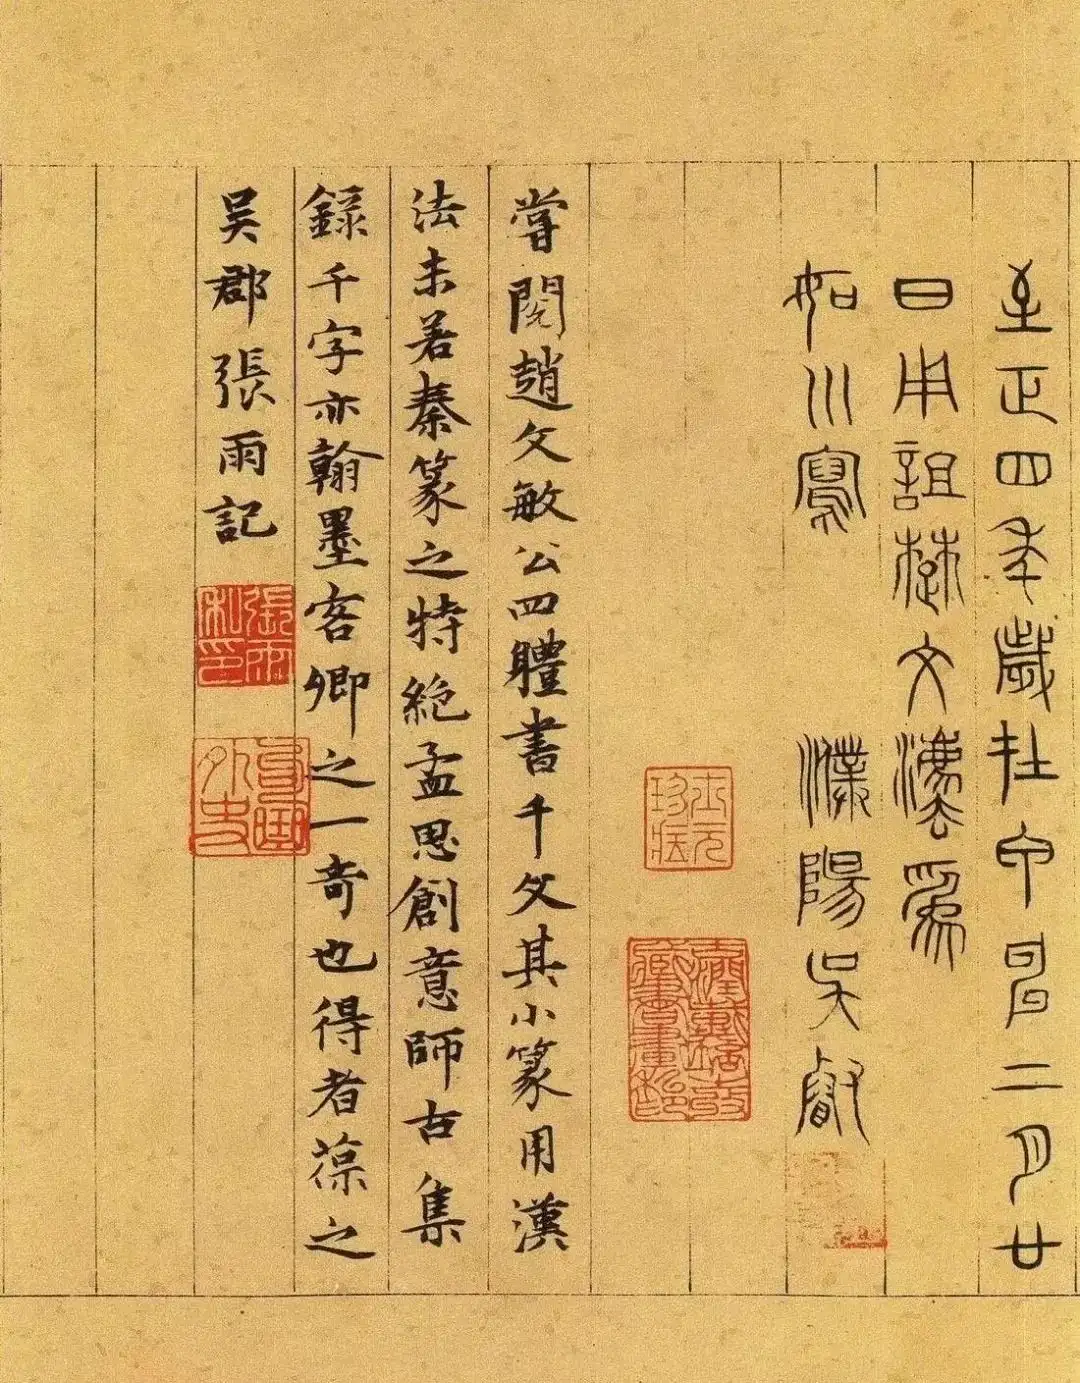 至正四年歲在甲申二月廿
日用詛楚文灋為
如川寫 濮陽吳叡
嘗閱趙文敏公四體書千文其小篆用漢
法未若秦篆之特絕孟思創意師古集
錄千字亦翰墨客卿之一奇也得者葆之
吳郡張雨記
張雨私印
句曲外史